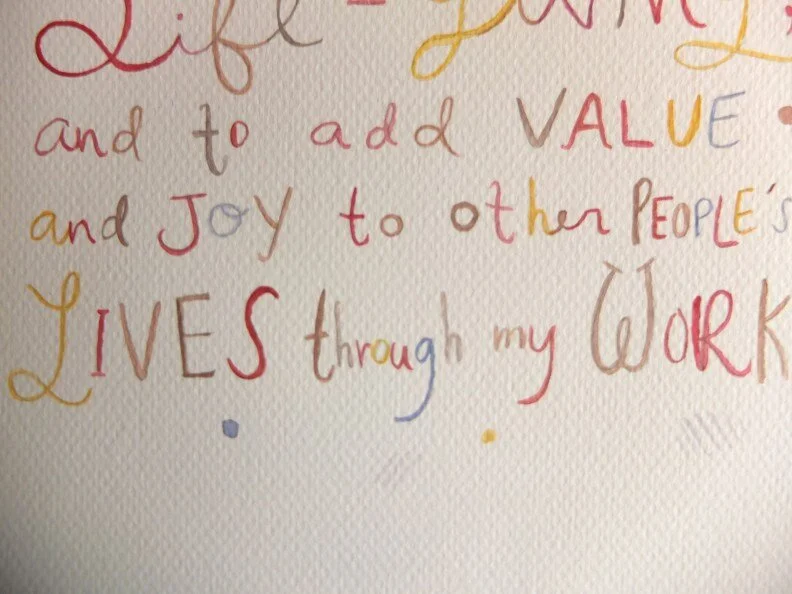 Life -
and to add VALUE
and JOY to other PEOPLE's
LIVES through my WORK